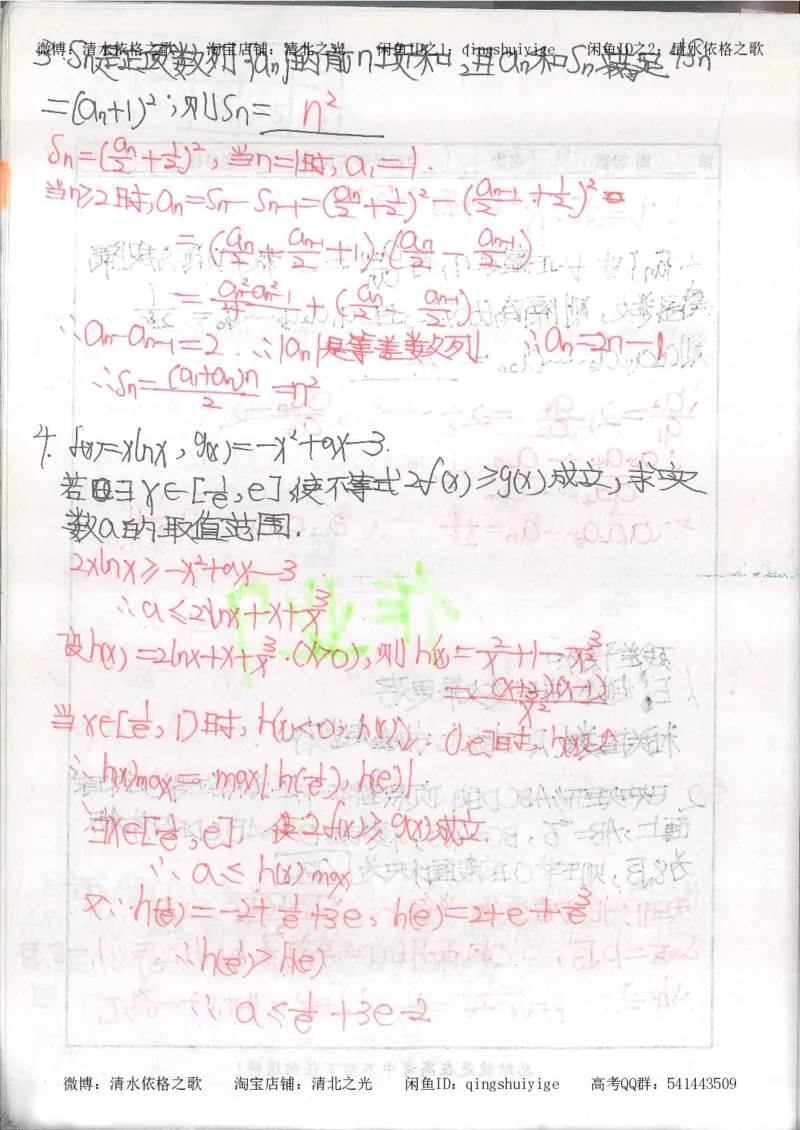 微博：清水依格之歌 淘宝店铺：清北之光 闲鱼ID之1：qingshuiyige 闲鱼ID之2：清水依格之歌
3. Sn是正项数列{an}的前n项和,且an和Sn满足4Sn
=(an+1)²,则Sn= n²
Sn=(an/2+1/2)², 当n=1时, a₁=1.
当n≥2时, an=Sn-Sn-1=(an/2+1/2)²-(an-1/2+1/2)²
=(an/2+an-1/2+1)(an/2-an-1/2)
=(an²-an-1²)/4+(an/2-an-1/2)
∴an-an-1=2. ∴{an}是等差数列 ∴an=2n-1
∴Sn=(a₁+an)n/2=n²
4. f(x)=xlnx, g(x)=-x²+ax-3.
若∃x∈[1/e,e],使不等式2f(x)≥g(x)成立,求实
数a的取值范围.
2xlnx≥-x²+ax-3
∴a≤2lnx+x+3/x
设h(x)=2lnx+x+3/x.(x>0),则h'(x)=2/x+1-3/x²
=(x+3)(x-1)/x²
当x∈[1/e,1)时,h'(x)<0,h(x)↓.(1,e]时,h(x)↑
∴h(x)max=max{h(1/e),h(e)}.
∃x∈[1/e,e], 使2f(x)≥g(x)成立
∴a≤h(x)max
又∵h(1/e)=-2+1/e+3e, h(e)=2+e+3/e
∴h(1/e)>h(e)
∴a≤1/e+3e-2
微博：清水依格之歌 淘宝店铺：清北之光 闲鱼ID：qingshuiyige 高考QQ群：541443509